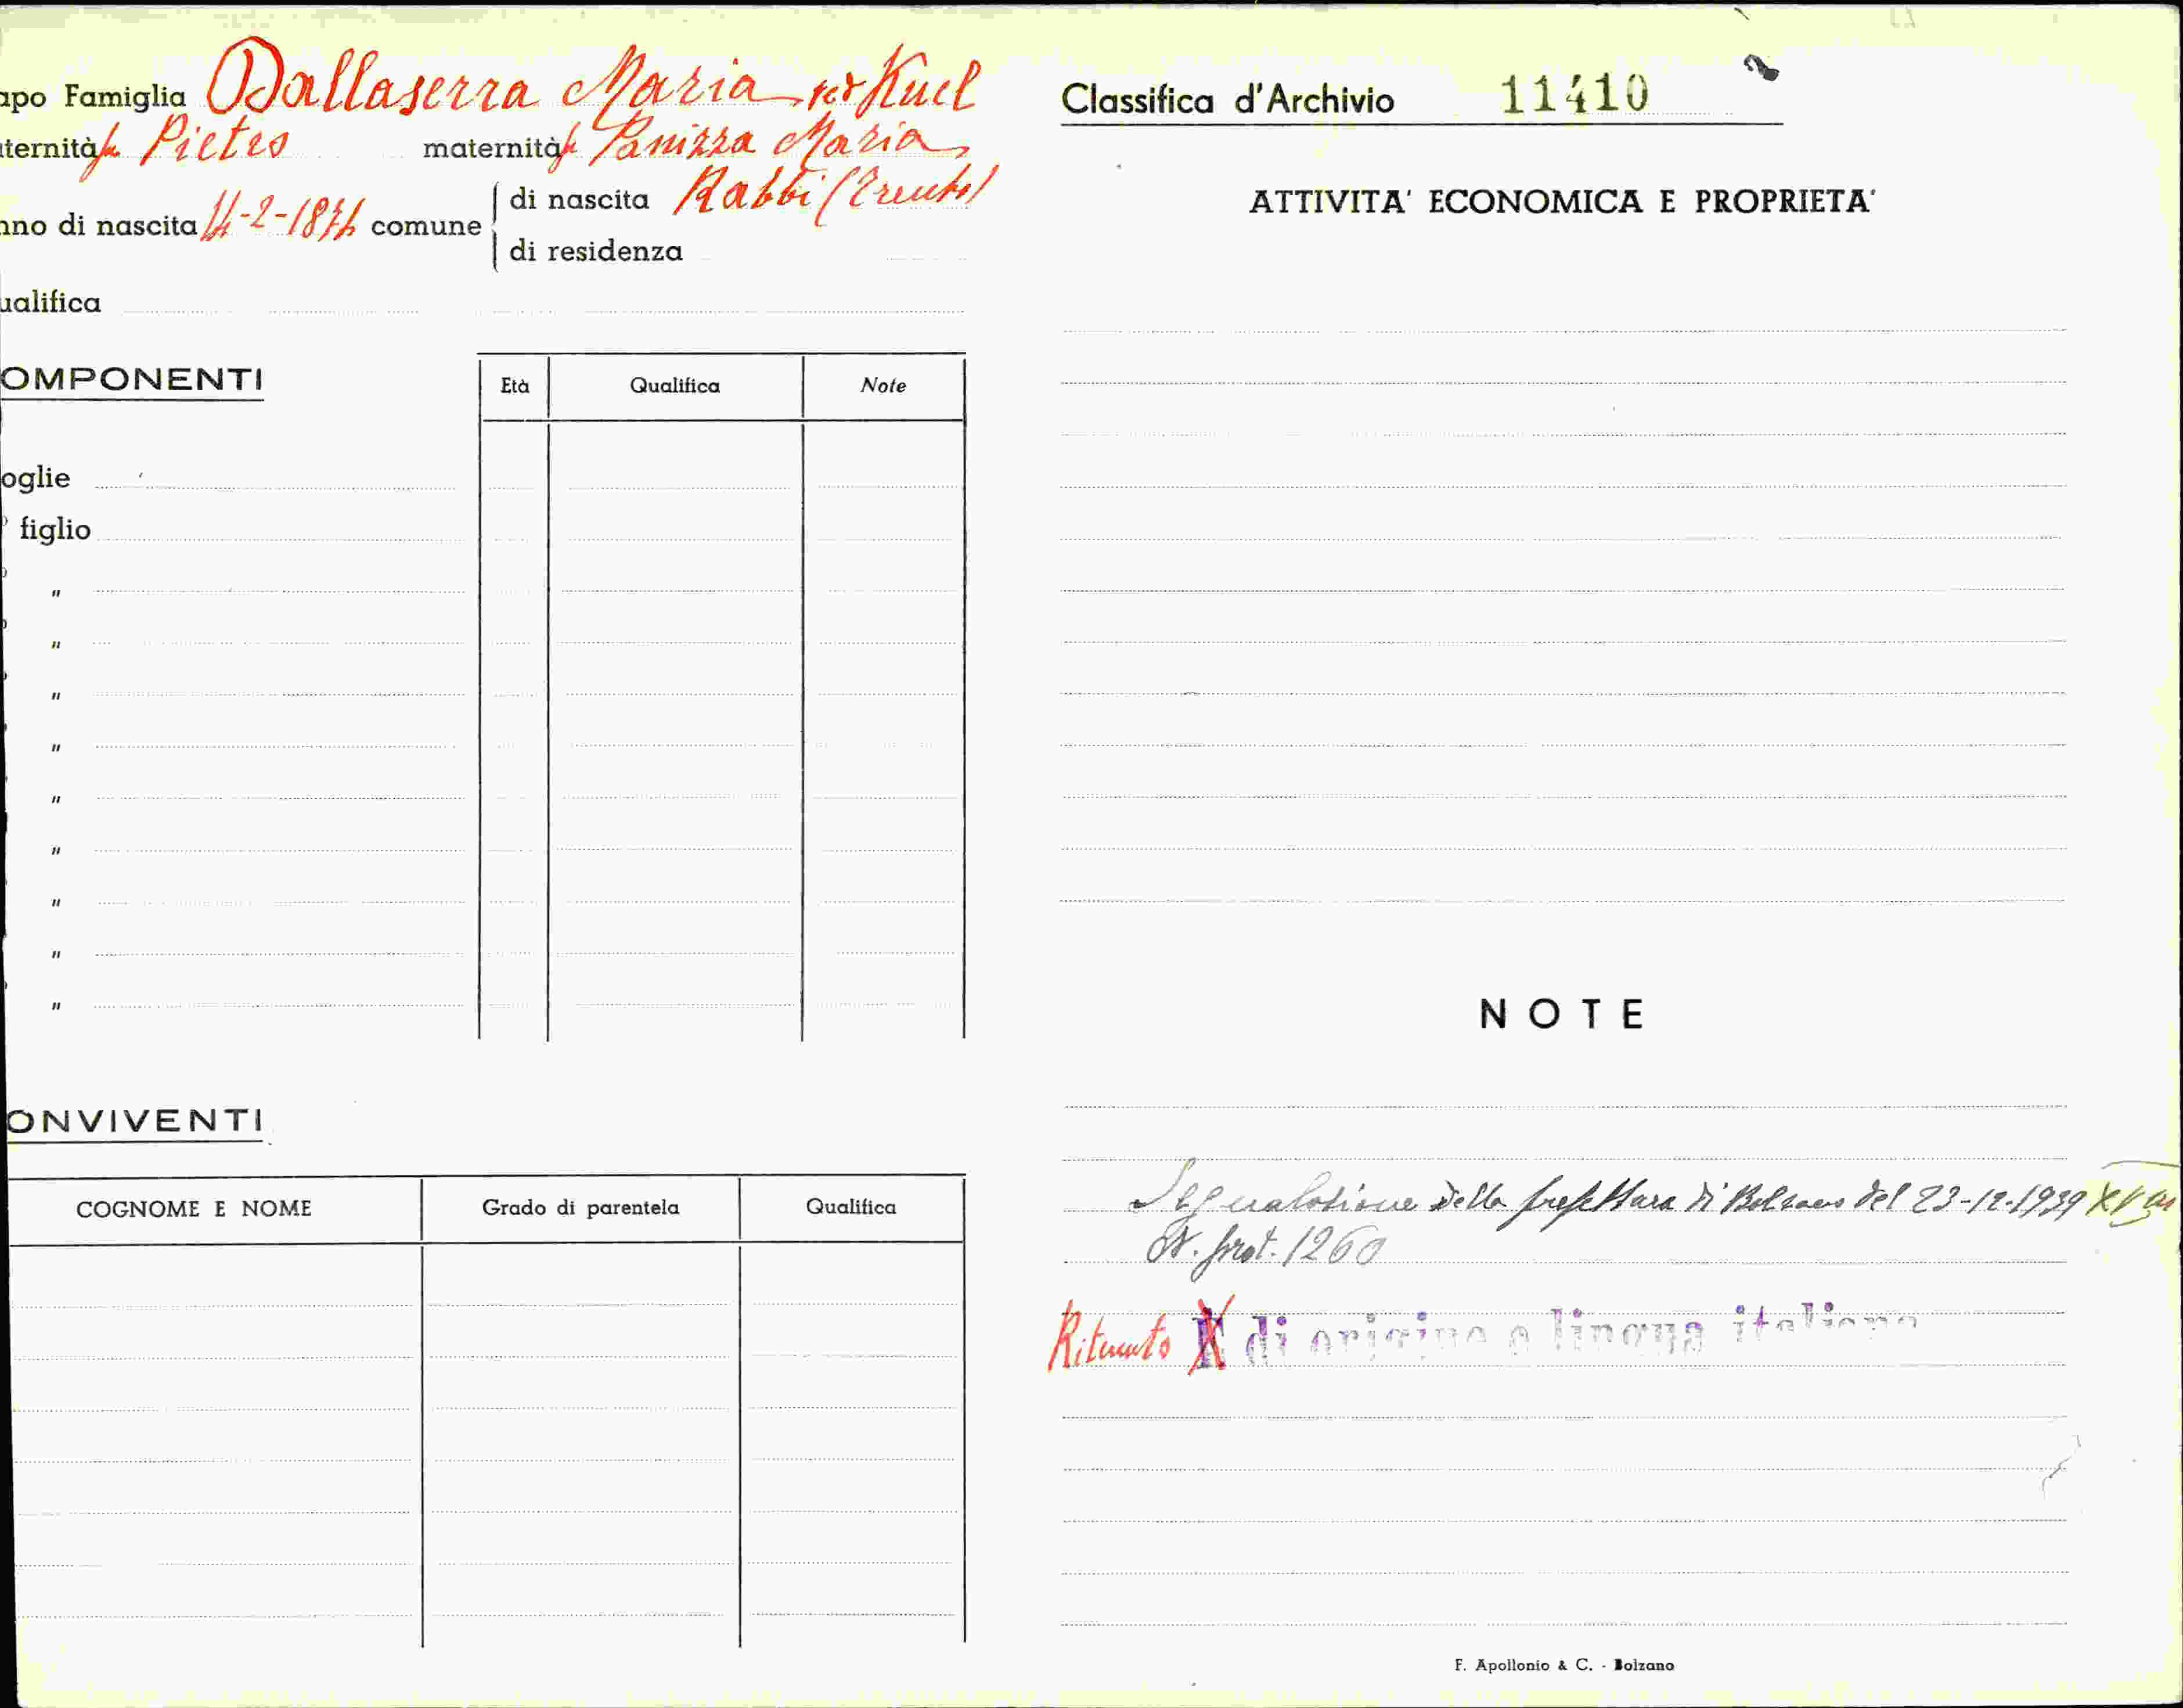 apo Famiglia Dallaserra Maria ved Kuel
ternità fu Pietro maternità fu Panizza Maria
nno di nascita comune di nascita Rabbi (Trento)
di residenza
ualifica
OMPONENTI
Età Qualifica Note
oglie
figlio
"
"
"
"
"
"
"
"
"
ONVIVENTI
COGNOME E NOME Grado di parentela Qualifica
Classifica d'Archivio 11410
ATTIVITA' ECONOMICA E PROPRIETA'
NOTE
Segnalazione della prefettura di Bolzano del 23-12-1939
N. prot. 1260
Ritenuto di origine e lingua italiana
F. Apollonio & C. - Bolzano